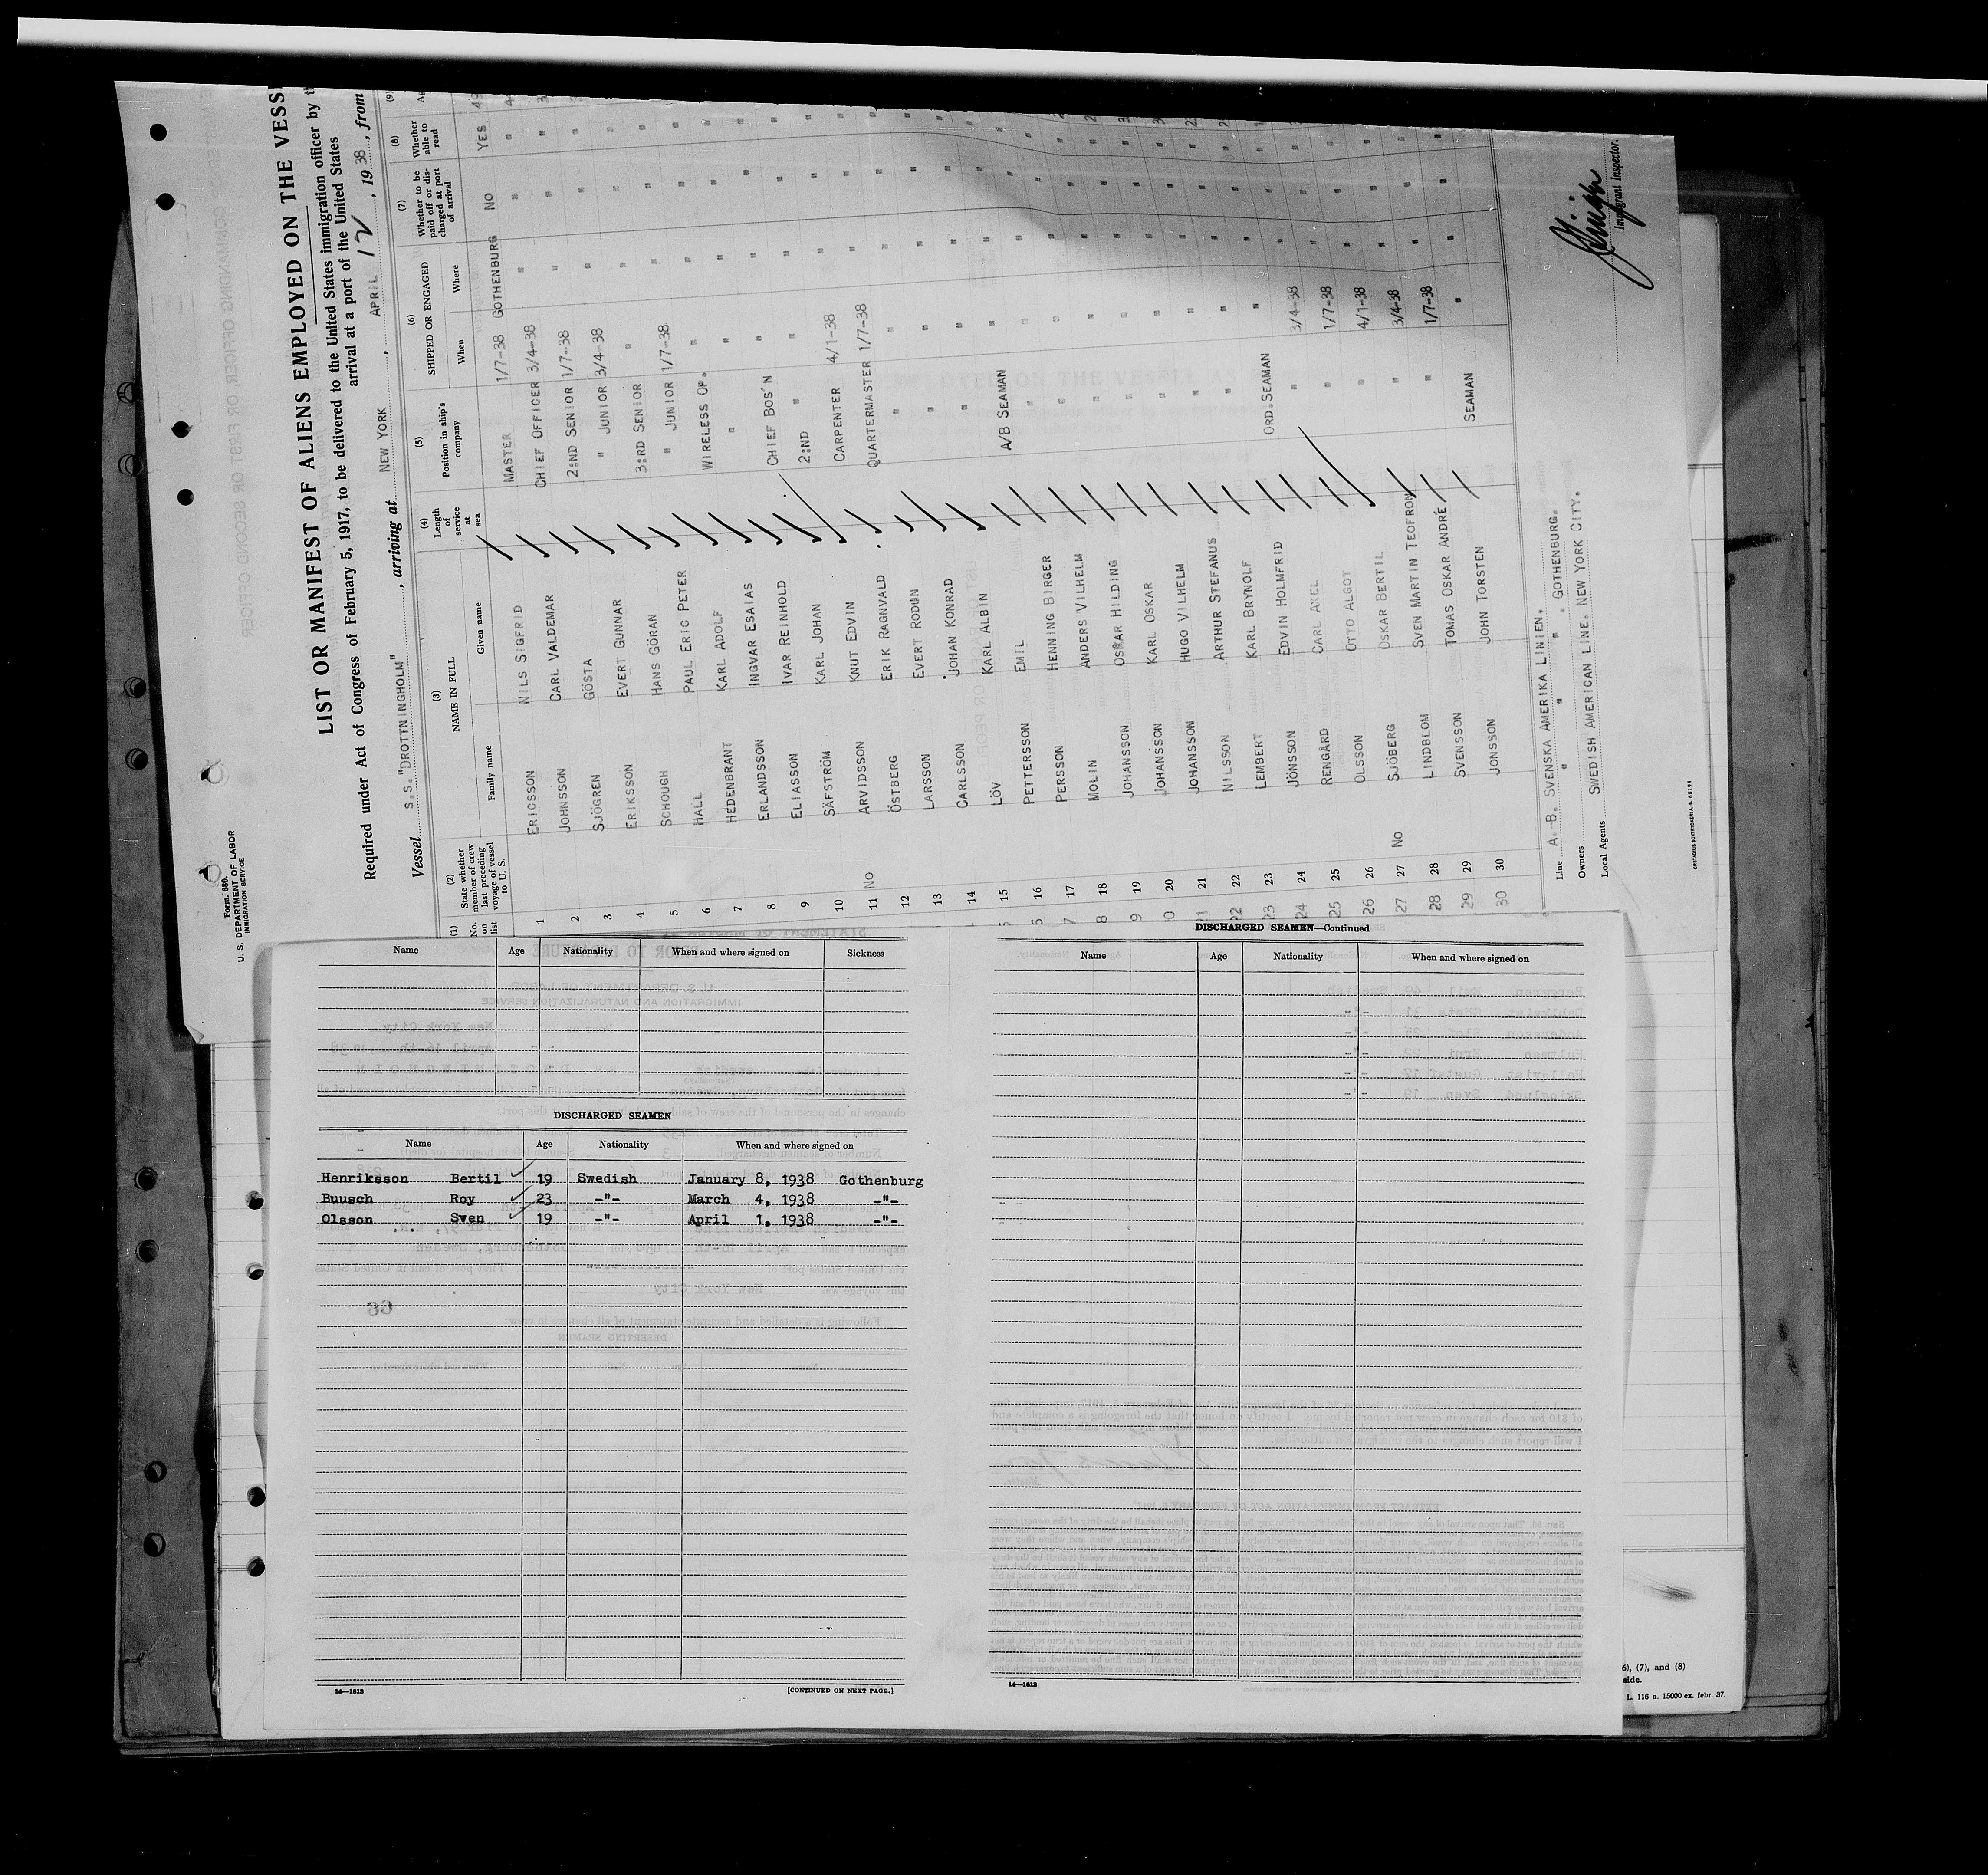 Form 680.
U. S. DEPARTMENT OF LABOR
IMMIGRATION SERVICE
LIST OR MANIFEST OF ALIENS EMPLOYED ON THE
Required under Act of Congress of February 5, 1917, to be delivered to the United States immigration officer by
arrival at a port of the United States
Vessel S.S."DROTTNINGHOLM", arriving at NEW YORK, APRIL 12, 1938, from
(1) No. on list
(2) State whether member of crew on last preceding voyage of vessel to U. S.
(3) NAME IN FULL
Family name Given name
(4) Length of service at sea
(5) Position in ship's company
(6) SHIPPED OR ENGAGED
When Where
(7) Whether to be paid off or discharged at port of arrival
(8) Whether able to read
(9)
1 ERICSSON NILS SIGFRID MASTER 1/7-38 GOTHENBURG NO YES
2 JOHNSSON CARL VALDEMAR CHIEF OFFICER 3/4-38 " " "
3 SJÖGREN GÖSTA 2:ND SENIOR 1/7-38 " " "
4 ERIKSSON EVERT GUNNAR " JUNIOR 3/4-38 " " "
5 SCHOUGH HANS GÖRAN 3:RD SENIOR " " " "
6 HALL PAUL ERIC PETER " JUNIOR 1/7-38 " " "
7 HEDENBRANT KARL ADOLF WIRELESS OP. " " " "
8 ERLANDSSON INGVAR ESAIAS " " " " "
9 ELIASSON IVAR REINHOLD CHIEF BOS'N " " " "
10 SÄFSTRÖM KARL JOHAN 2:ND " " " " "
11 No ARVIDSSON KNUT EDVIN CARPENTER 4/1-38 " " "
12 ÖSTBERG ERIK RAGNVALD QUARTERMASTER 1/7-38 " " "
13 LARSSON EVERT RODUN " " " " "
14 CARLSSON JOHAN KONRAD " " " " "
15 LÖV KARL ALBIN " " " " "
16 PETTERSSON EMIL A/B SEAMAN " " " "
17 PERSSON HENNING BIRGER " " " " "
18 MOLIN ANDERS VILHELM " " " " "
19 JOHANSSON OSKAR HILDING " " " " "
20 JOHANSSON KARL OSKAR " " " " "
21 JOHANSSON HUGO VILHELM " " " " "
22 NILSSON ARTHUR STEFANUS " " " " "
23 LEMBERT KARL BRYNOLF " " " " "
24 JÖNSSON EDVIN HOLMFRID ORD.SEAMAN " " " "
25 RENGÅRD CARL AXEL " 3/4-38 " " "
26 OLSSON OTTO ALGOT " 1/7-38 " " "
27 No SJÖBERG OSKAR BERTIL " 4/1-38 " " "
28 LINDBLOM SVEN MARTIN TEOFRON " 3/4-38 " " "
29 SVENSSON TOMAS OSKAR ANDRÉ " 1/7-38 " " "
30 JONSSON JOHN TORSTEN SEAMAN " " " "
Line A.-B. SVENSKA AMERIKA LINIEN. GOTHENBURG.
Owners " " " "
Local Agents SWEDISH AMERICAN LINE. NEW YORK CITY.
Immigrant Inspector.
Name Age Nationality When and where signed on Sickness
DISCHARGED SEAMEN
Name Age Nationality When and where signed on
Henriksson Bertil 19 Swedish January 8, 1938 Gothenburg
Buusch Roy 23 -"- March 4, 1938 -"-
Olsson Sven 19 -"- April 1, 1938 -"-
14—1613 [CONTINUED ON NEXT PAGE.]
DISCHARGED SEAMEN—Continued
Name Age Nationality When and where signed on
14—1613
(7), and (8)
side.
L. 116 n. 15000 ex. febr. 37.